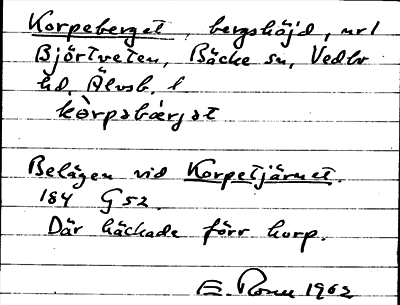 Korpeberget, bergshöjd, nr 1
Björtveten, Bäcke sn, Vedbo
hd, Älvsb. l
kòrpəbæ̀rjət
Belägen vid Korpetjärnet.
184 G 52.
Där häckade förr korp.
E. 1962